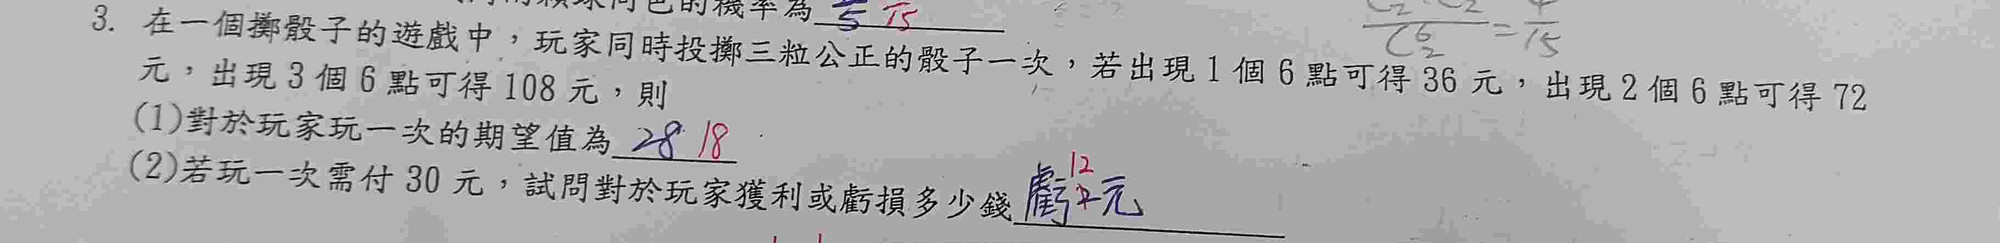 色的機率為 5 15
3. 在一個擲骰子的遊戲中，玩家同時投擲三粒公正的骰子一次，若出現 1 個 6 點可得 36 元，出現 2 個 6 點可得 72
元，出現 3 個 6 點可得 108 元，則
(1)對於玩家玩一次的期望值為 28 18
(2)若玩一次需付 30 元，試問對於玩家獲利或虧損多少錢 虧 2 12 元